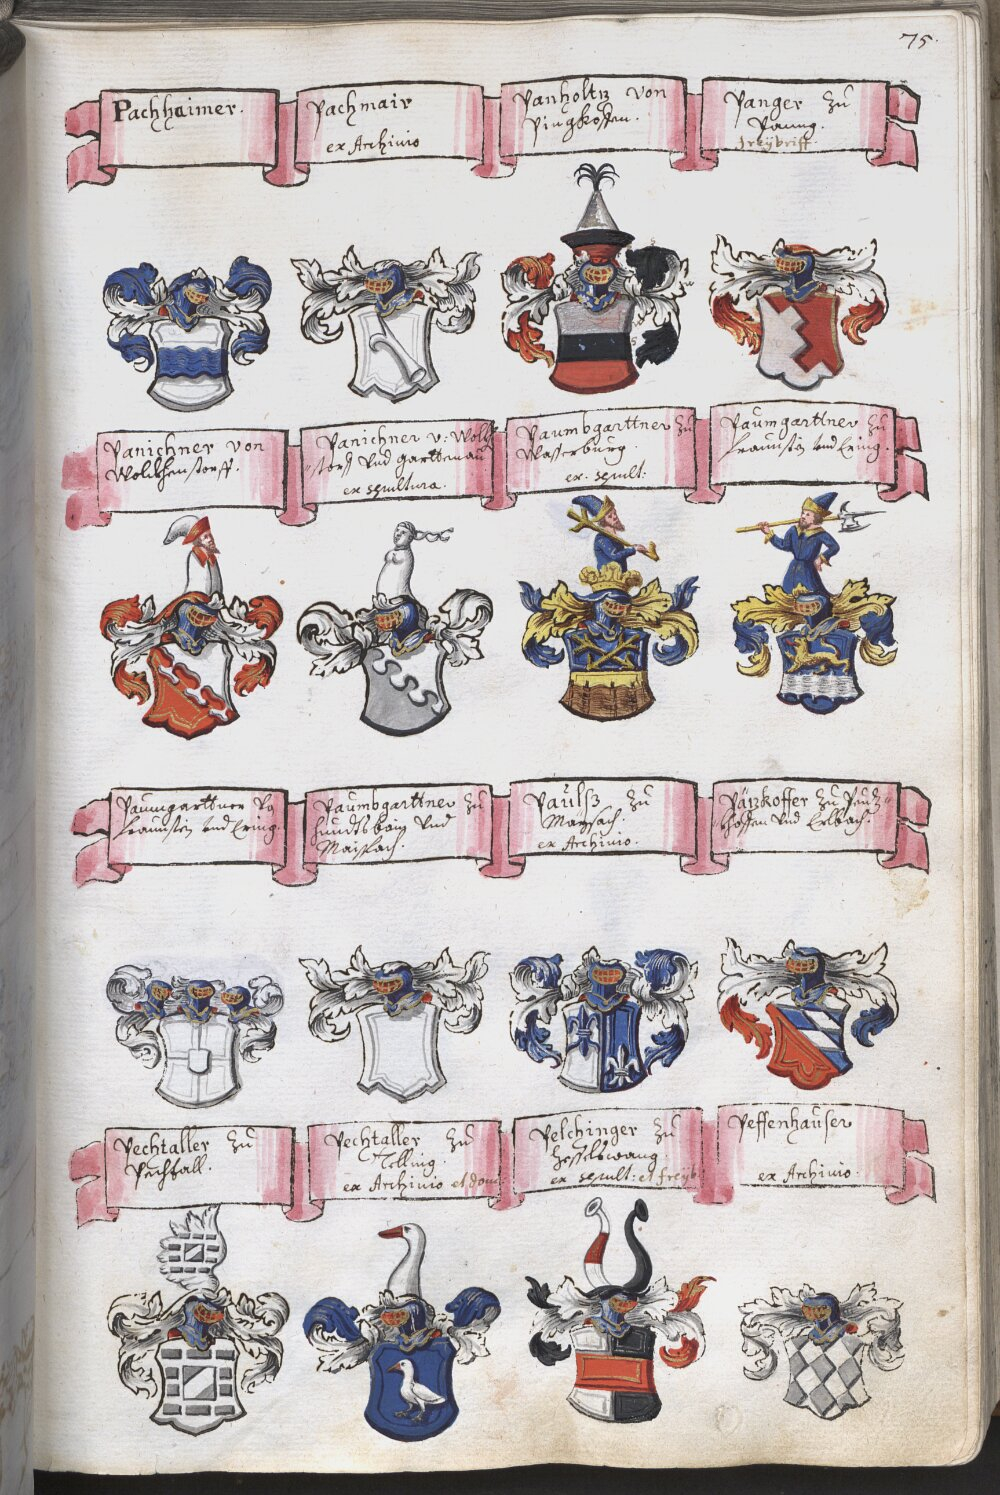 75.
Pachhaimer.
Pachmair
ex Archivio
Panholtz von
Pingkoffen.
Panger zu
Paung.
Panichner von
Wolkhenstorff.
Panichner v: Wolkh
storf vnd garttenau
ex sepultura.
Paumbgarttner zu
Wasserburg
ex. sepult.
Paumgarttner zu
Fraunstein vnd Ering.
Paumgarttner zu
Fraunstein vnd Ering.
Paumbgarttner zu
vnd
Maislach.
Paulß zu
Maysach.
ex Archivio.
Päizkoffer zu
vnd Erlbach.
Pechtaller zu
Pechtall.
Pechtaller zu
Zelling.
ex Archivio et dom
Pelchinger zu
Hesslwang
ex sepult: et freyb
Peffenhauser
ex Archivio